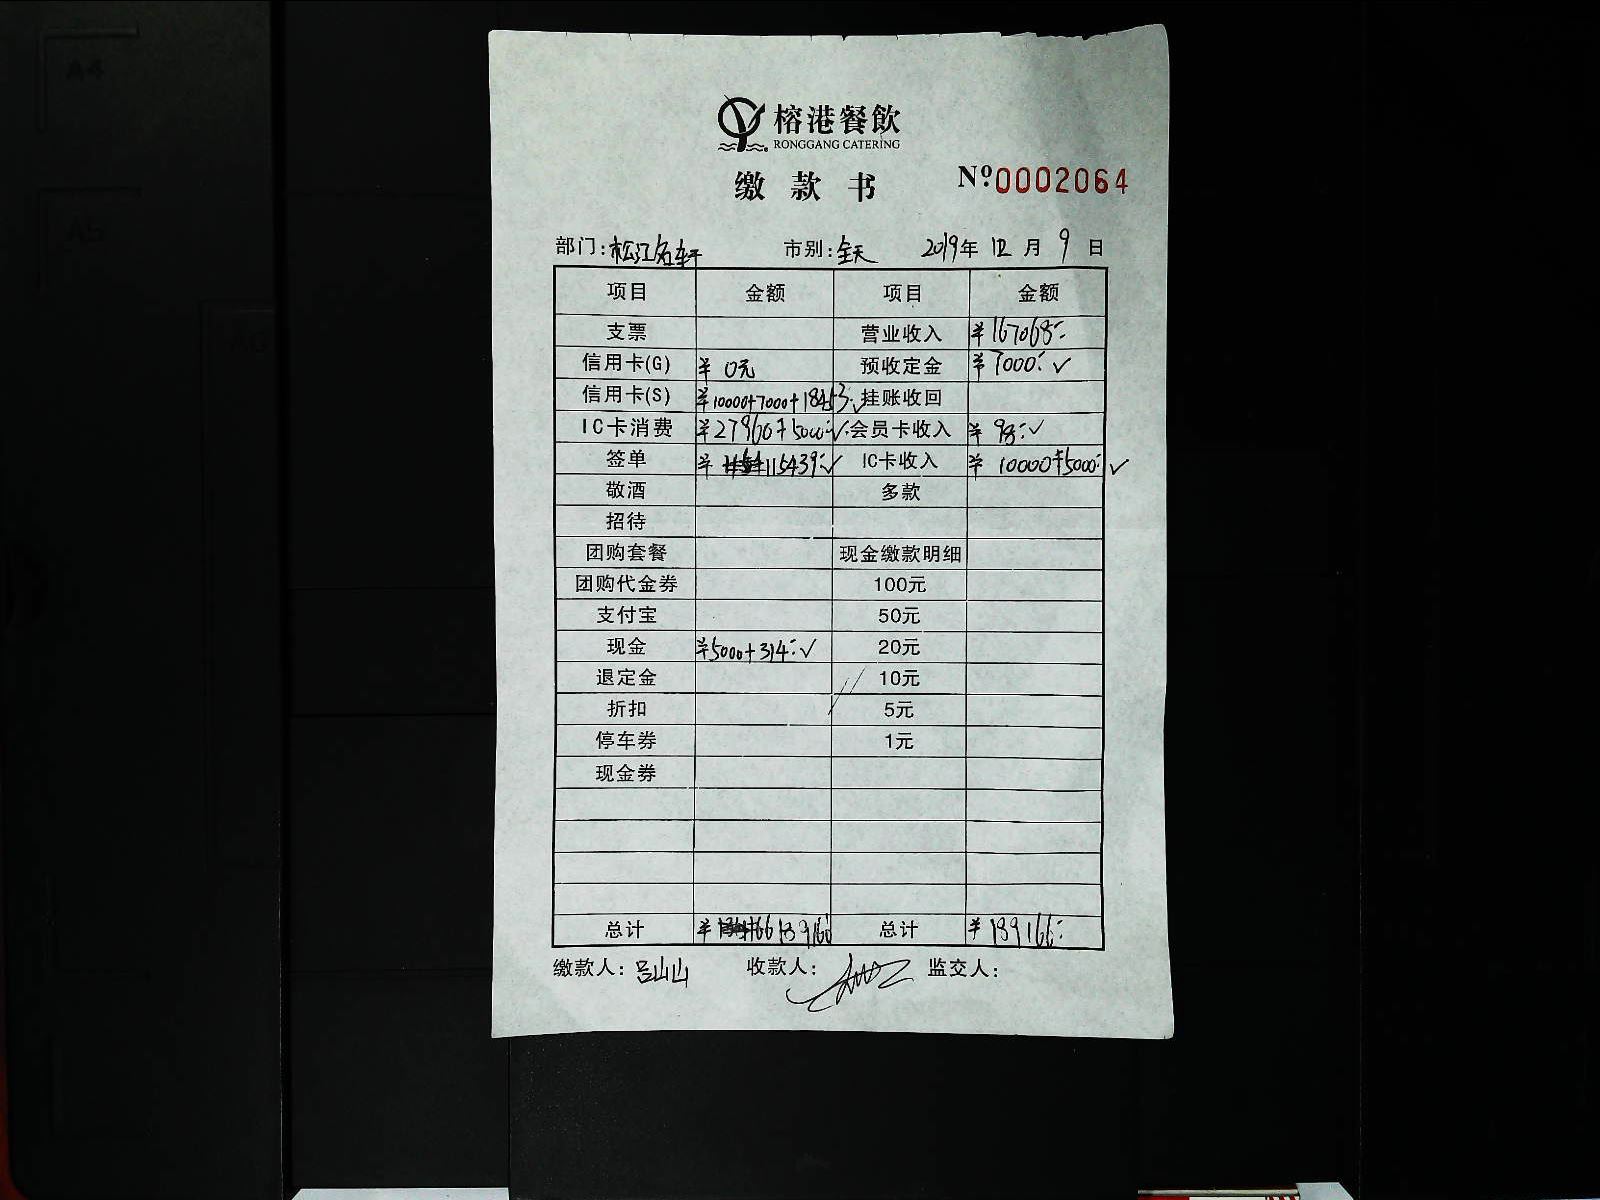 A4
A5
A6
榕港餐飲
RONGGANG CATERING
缴款书
Nº0002064
部门:松江名轩 市别:全天 2019年 12 月 9 日
项目 金额 项目 金额
支票 营业收入 ¥167068:-
信用卡(G) ¥ 0元 预收定金 ¥7000:- ✓
信用卡(S) ¥10000+7000+18453 ✓ 挂账收回
IC卡消费 ¥27960+5000:- ✓ 会员卡收入 ¥ 98:- ✓
签单 ¥ 115439:- ✓ IC卡收入 ¥ 10000+5000:- ✓
敬酒 多款
招待
团购套餐 现金缴款明细
团购代金券 100元
支付宝 50元
现金 ¥5000+314:- ✓ 20元
退定金 10元
折扣 5元
停车券 1元
现金券
总计 ¥ 189166 总计 ¥ 189166:-
缴款人: 吕山山 收款人: 监交人: